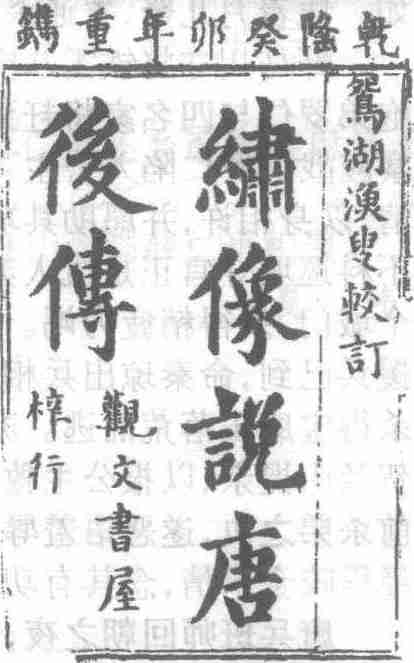 乾隆癸卯年重鐫
鴛湖漁叟較訂
繡像説唐
後傳
觀文書屋
梓行